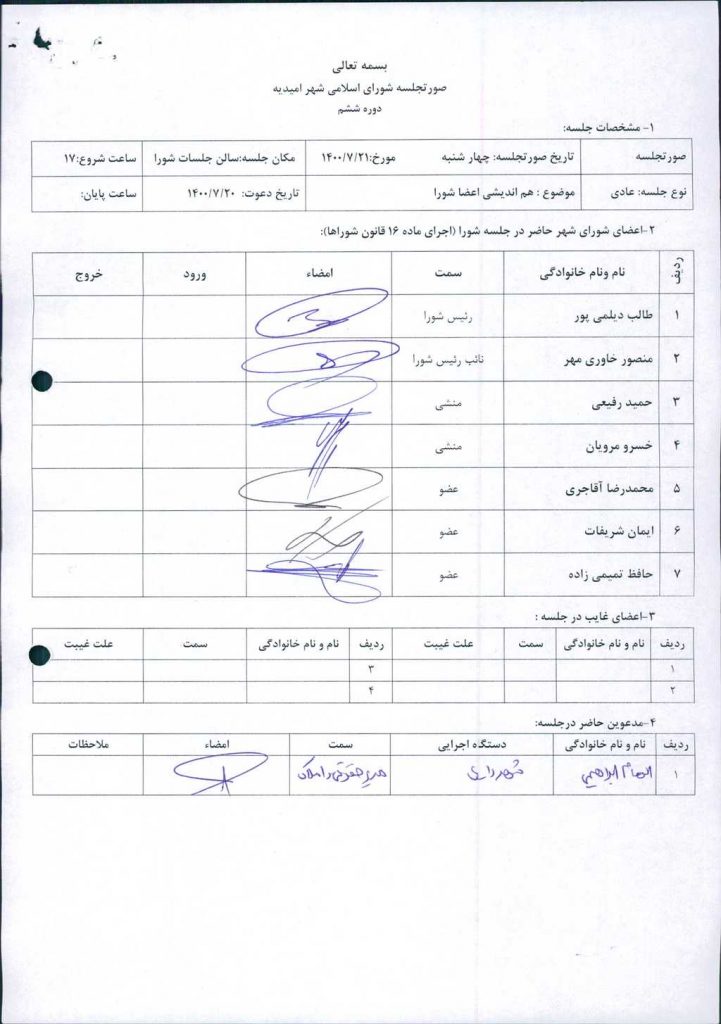 بسمه تعالی
صورتجلسه شورای اسلامی شهر امیدیه
دوره ششم
۱- مشخصات جلسه:
صورتجلسه تاریخ صورتجلسه: چهار شنبه مورخ:۱۴۰۰/۷/۲۱ مکان جلسه:سالن جلسات شورا ساعت شروع:۱۷
نوع جلسه: عادی موضوع : هم اندیشی اعضا شورا تاریخ دعوت: ۱۴۰۰/۷/۲۰ ساعت پایان:
۲-اعضای شورای شهر حاضر در جلسه شورا (اجرای ماده ۱۶ قانون شوراها):
ردیف نام ونام خانوادگی سمت امضاء ورود خروج
۱ طالب دیلمی پور رئیس شورا
۲ منصور خاوری مهر نائب رئیس شورا
۳ حمید رفیعی منشی
۴ خسرو مرویان منشی
۵ محمدرضا آقاجری عضو
۶ ایمان شریفات عضو
۷ حافظ تمیمی زاده عضو
۳-اعضای غایب در جلسه :
ردیف نام و نام خانوادگی سمت علت غیبت ردیف نام و نام خانوادگی سمت علت غیبت
۱ ۳
۲ ۴
۴-مدعوین حاضر درجلسه:
ردیف نام و نام خانوادگی دستگاه اجرایی سمت امضاء ملاحظات
۱ الهام ابراهیمی شهرداری مدیر حقوقی و املاک